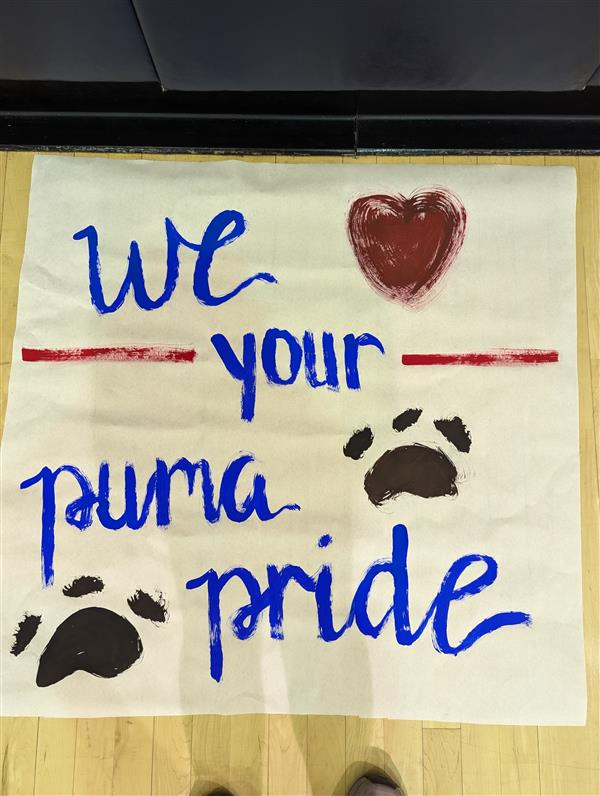 we
your
puma
pride